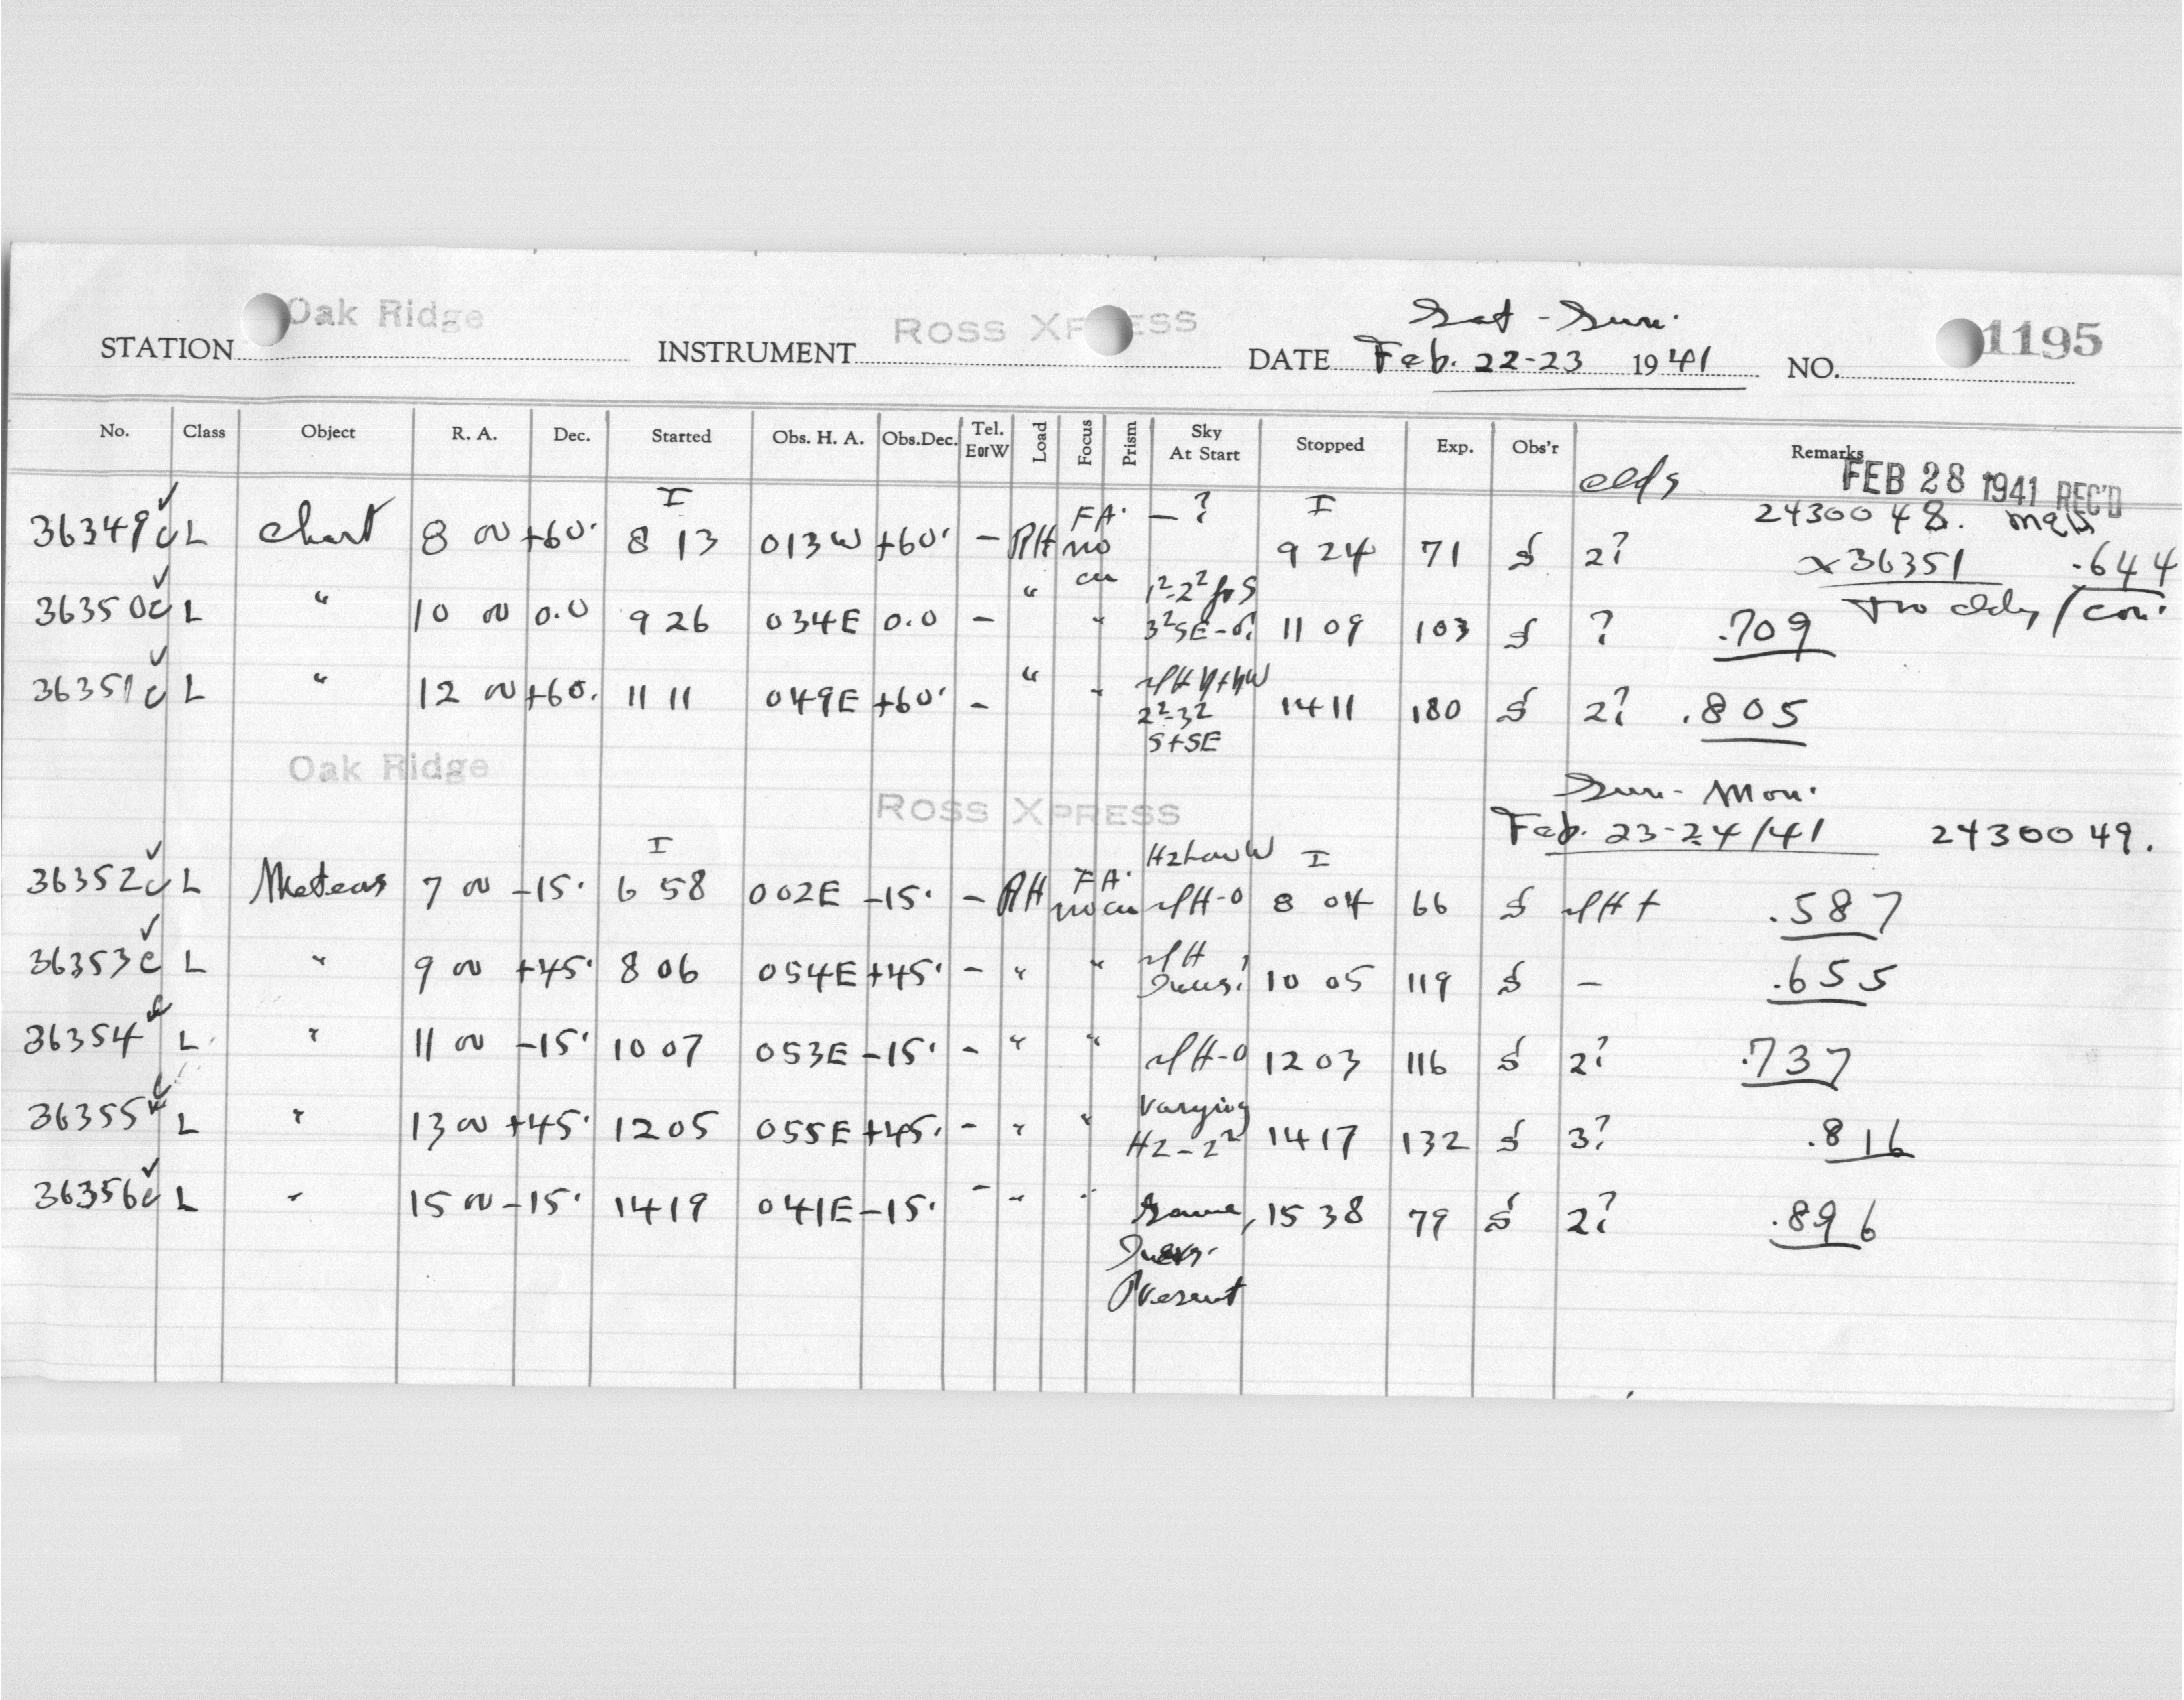 Oak Ridge ROSS XPRESS Sat - Sun.
STATION INSTRUMENT DATE Feb. 22-23 1941 NO. 1195
No. Class Object R. A. Dec. Started Obs. H. A. Obs.Dec. Tel. EorW Load Focus Prism Sky At Start Stopped Exp. Obs'r Remarks
clds FEB 28 1941 REC'D
I FA. I 2430048.
36349 c L Chart 8 00 +60. 8 13 013W +60. - RH no cu - ? 9 24 71 S 2? x36351 .644
36350 c L " 10 00 0.0 9 26 034E 0.0 - " " 3²SE 11 09 103 S ? .709
36351 c L " 12 00 +60. 11 11 049E +60. - " " 2²-3² S+SE 14 11 180 S 2? .805
Oak Ridge Sun - Mon.
ROSS XPRESS Feb. 23-24/41 2430049.
I FA. Hz Low W I
36352 c L Meteors 7 00 -15. 6 58 002E -15. - RH no cu H-0 8 04 66 S .587
36353 c L " 9 00 +45. 8 06 054E +45. - " " 10 05 119 S - .655
36354 c L " 11 00 -15. 10 07 053E -15. - " " H-0 12 03 116 S 2? .737
36355 c L " 13 00 +45. 12 05 055E +45. - " " Varying Hz-2² 14 17 132 S 3? .816
36356 c L " 15 00 -15. 14 19 041E -15. - " " Same, 15 38 79 S 2? .896
Present